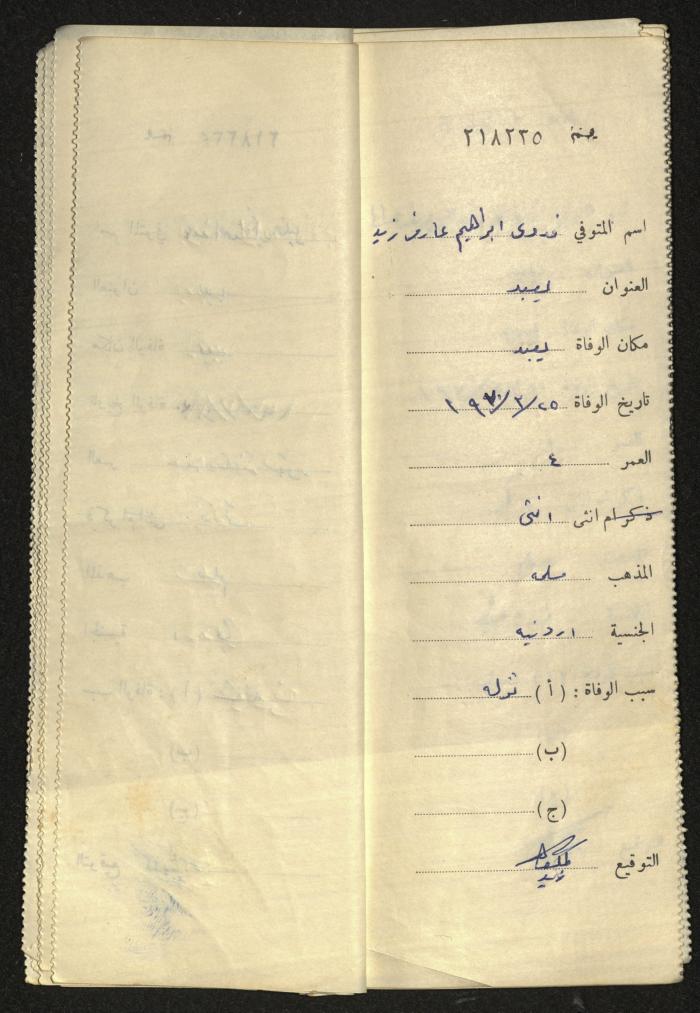 جنين ٢١٨٢٢٥
اسم المتوفي فدوى ابراهيم عارف زيد
العنوان يعبد
مكان الوفاة يعبد
تاريخ الوفاة ٢٥/٣/١٩٧٠
العمر ٤
ذكر ام انثى انثى
المذهب مسلمه
الجنسية اردنيه
سبب الوفاة : (أ) نزله
(ب)
(ج)
التوقيع